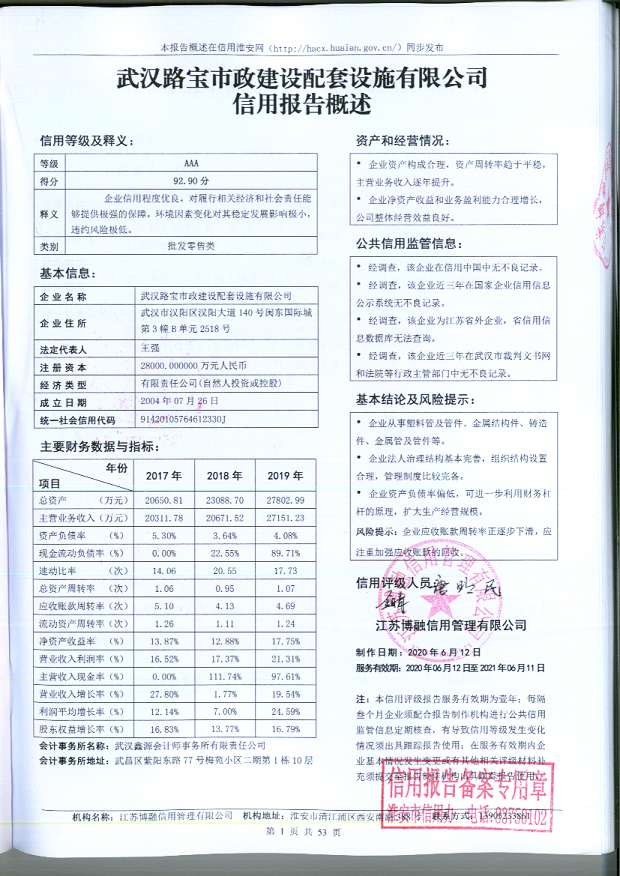 本报告概述在信用淮安网（http://hacx.huaian.gov.cn/）同步发布
武汉路宝市政建设配套设施有限公司
信用报告概述
信用等级及释义：
等级 AAA
得分 92.90分
释义 企业信用程度优良，对履行相关经济和社会责任能
够提供极强的保障，环境因素变化对其稳定发展影响极小，
违约风险极低。
类别 批发零售类
基本信息：
企业名称 武汉路宝市政建设配套设施有限公司
企业住所 武汉市汉阳区汉阳大道140号闽东国际城
第3幢B单元2518号
法定代表人 王强
注册资本 28000.000000万元人民币
经济类型 有限责任公司(自然人投资或控股)
成立日期 2004年07月26日
统一社会信用代码 91420105764612330J
主要财务数据与指标：
项目 年份 2017年 2018年 2019年
总资产 （万元） 20650.81 23088.70 27802.99
主营业务收入（万元） 20311.78 20671.52 27151.23
资产负债率 （%） 5.30% 3.64% 4.08%
现金流动负债率（%） 0.00% 22.55% 89.71%
速动比率 （次） 14.06 20.55 17.73
总资产周转率 （次） 1.06 0.95 1.07
应收账款周转率（次） 5.10 4.13 4.69
流动资产周转率（次） 1.26 1.11 1.24
净资产收益率（%） 13.87% 12.88% 17.75%
营业收入利润率（%） 16.52% 17.37% 21.31%
主营收入现金率（%） 0.00% 111.74% 97.61%
营业收入增长率（%） 27.80% 1.77% 19.54%
利润平均增长率（%） 12.14% 7.00% 24.59%
股东权益增长率（%） 16.83% 13.77% 16.79%
会计事务所名称：武汉鑫源会计师事务所有限责任公司
会计事务所地址：武昌区紫阳东路77号梅苑小区二期第1栋10层
资产和经营情况：
• 企业资产构成合理，资产周转率趋于平稳，
主营业务收入逐年提升。
• 企业净资产收益和业务盈利能力合理增长，
公司整体经营效益良好。
公共信用监管信息：
• 经调查，该企业在信用中国中无不良记录。
• 经调查，该企业近三年在国家企业信用信息
公示系统无不良记录。
• 经调查，该企业为江苏省外企业，省信用信
息数据库无法查询。
• 经调查，该企业近三年在武汉市裁判文书网
和法院等行政主管部门中无不良记录。
基本结论及风险提示：
• 企业从事塑料管及管件、金属结构件、铸造
件、金属管及管件等。
• 企业法人治理结构基本完善，组织结构设置
合理，管理制度比较完备。
• 企业资产负债率偏低，可进一步利用财务杠
杆的原理，扩大生产经营规模。
风险提示：企业应收账款周转率正逐步下滑，应
注重加强应收账款的回收。
信用评级人员：
江苏博融信用管理有限公司
制作日期：2020年6月12日
服务有效期：2020年06月12日至2021年06月11日
注：本信用评级报告服务有效期为壹年；每隔
叁个月企业须配合报告制作机构进行公共信用
监管信息定期核查，有导致信用等级发生变化
情况须出具跟踪报告使用；在服务有效期内企
业基本情况发生变更或有其他相关评级材料补
充须提交至报告制作机构出具跟踪报告使用。
信用报告备案专用章
淮安市信用办 电话:83750102
机构名称：江苏博融信用管理有限公司 机构地址：淮安市清江浦区西安南路388号 联系方式：13905233861
第 1 页 共 53 页